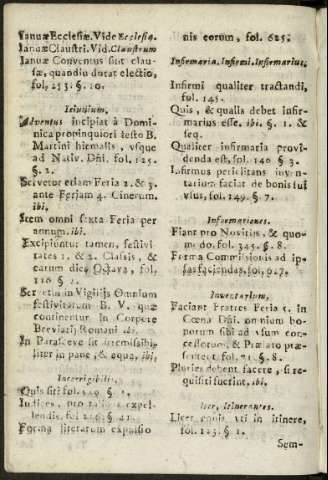 Ianuæ Ecclesiæ. Vide Ecclesia.
Ianuæ Claustri. Vid. Claustrum
Ianuæ Conventus sint clausæ,
quandiu durat electio,
fol, 253. §. 10.
Ieiunium,
Adventus incipiat à Dominica
propinquiori festo B.
Martini hiemalis, vsque
ad Nativ. Dñi. fol. 125.
§. 2.
Servetur etiam Feria 2. & 3.
ante Feriam 4. Cinerum.
ibi.
Item omni sexta Feria per
annum. ibi.
Excipiuntur tamen, festivitates
1. & 2. Classis, &
earum dies Octava, fol,
§. 2.
Servetur in Vigilijs Omnium
festivitatum B. V. quæ
continentur In Corpore
Breviarij Romani ibi.
In Parasceve sit
liter in pane, & aqua, ibi,
Incorrigibilis,
Quis sit: fol. §. 1,
expellendis.
fol.
Forma literarum expulsionis
eorum, fol. 625.
Infirmaria. Infirmi. Infirmarius.
Infirmi qualiter tractandi,
fol. 145.
Quis, & qualis debet infirmarius
esse. ibi. §. 1. &
seq.
Qualiter infirmaria providenda
est, fol. 146 §. 3.
Infirmus periclitans inventarium
faciat de bonis sui
vsus, fol. 149. §. 7.
Informationes.
Fiant pro Novitijs, & quomodo.
fol. 345. §. 8.
Forma Commissionis ad ipsas
faciendas, fol,
Inventarium,
Faciant Fratres Feria 5. in
Cœna Dñi. omnium bonorum
sibi ad vsum concessorum,
& Prælato præsertent
fol. 71. §. 8.
Pluries debent facere, si requisiti
fuerint, ibi.
Iter, Itinerantes.
Licet equis vti in itinere,
fol. 123. §. 1.
Sem-